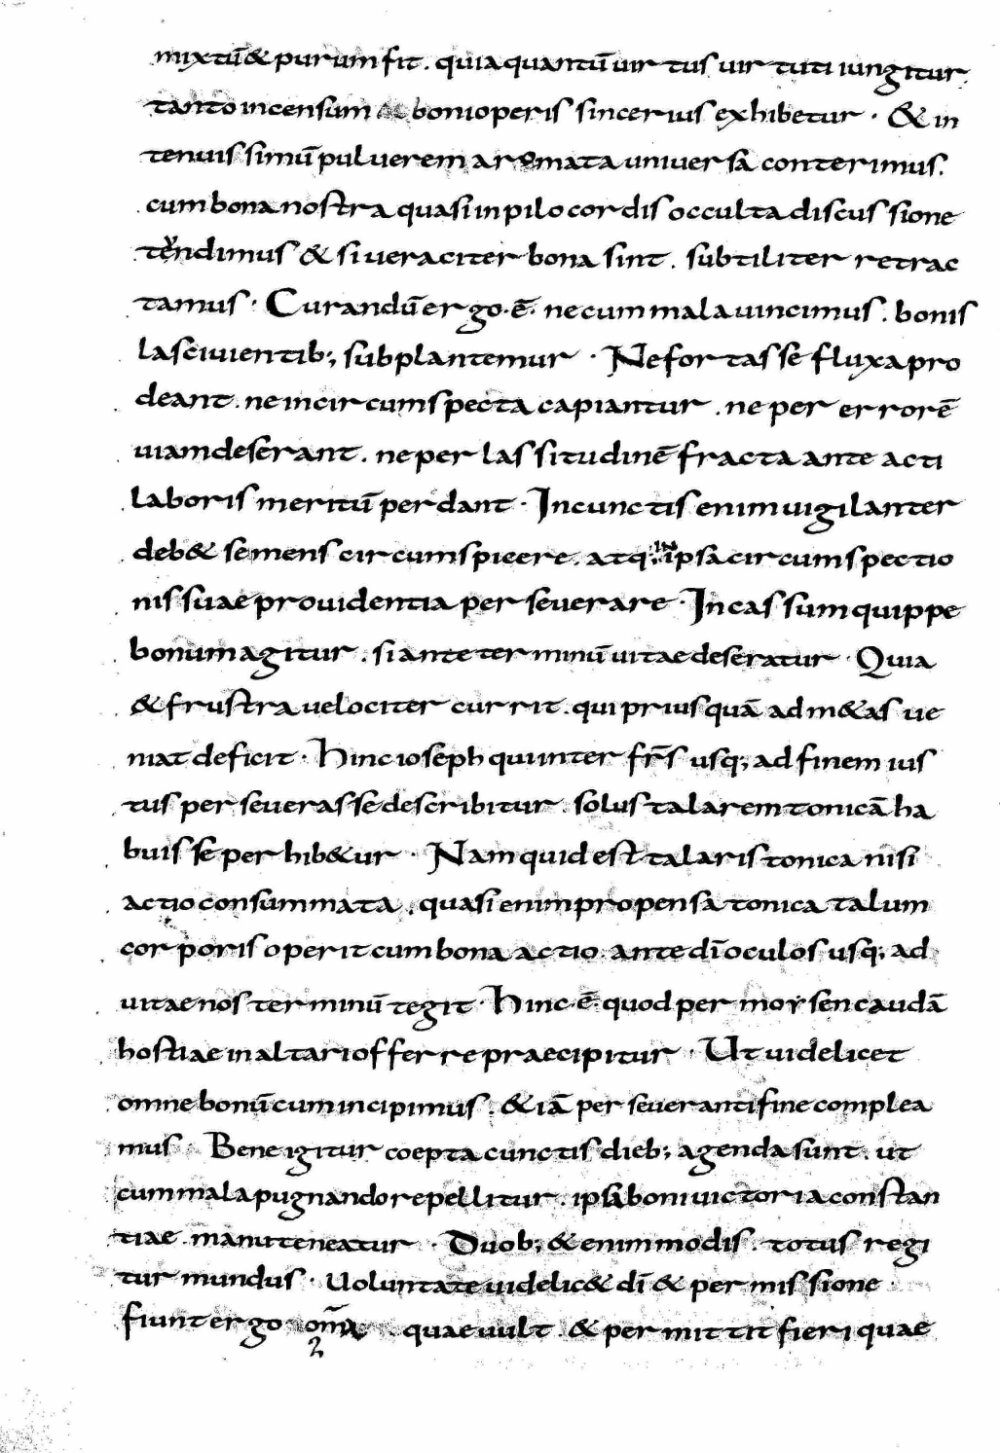 mixtū & purum fit. quia quantū uirtus uirtuti iungitur
tanto incensum boni operis sincerius exhibetur · & in
tenuissimū puluerem aromata uniuersa conterimus.
cum bona nostra quasi in pilo cordis occulta discussione
tendimus & si ueraciter bona sint. subtiliter retrac
tamus · Curandū ergo · ē · ne cum mala uincimus. bonis
lasciuientib; subplantemur · Ne fortasse fluxa pro
deant. ne incircumspecta capiantur. ne per errorē
uiam deserant. ne per lassitudinē fracta ante acti
laboris meritū perdant · In cunctis enim uigilanter
deb& se mens circumspicere. atq; in ipsa circumspectio
nis suae prouidentia perseuerare · Incassum quippe
bonum agitur. si ante terminū uitae deseratur · Quia
& frustra uelociter currit. qui prius quā ad m&as ue
niat deficit · Hinc ioseph qui inter frs̄ usq; ad finem ius
tus perseuerasse describitur. solus talarem tonicā ha
buisse perhib&ur · Nam quid est talaris tonica nisi
actio consummata. quasi enim propensa tonica talum
corporis operit cum bona actio. ante dī oculos usq; ad
uitae nos terminū tegit · Hinc · ē · quod per moysen caudā
hostiae in altari offerre praecipitur · Ut uidelicet
omne bonū cum incipimus. & iā perseueranti fine complea
mus · Bene igitur coepta cunctis dieb; agenda sunt. ut
cum mala pugnando repellitur. ipsa boni uictoria constan
tiae manu teneatur · Duob; & enim modis. totus regi
tur mundus · Uoluntate uidelic& dī & permissione ·
fiunt ergo om̄a quae uult. & permittit fieri quae